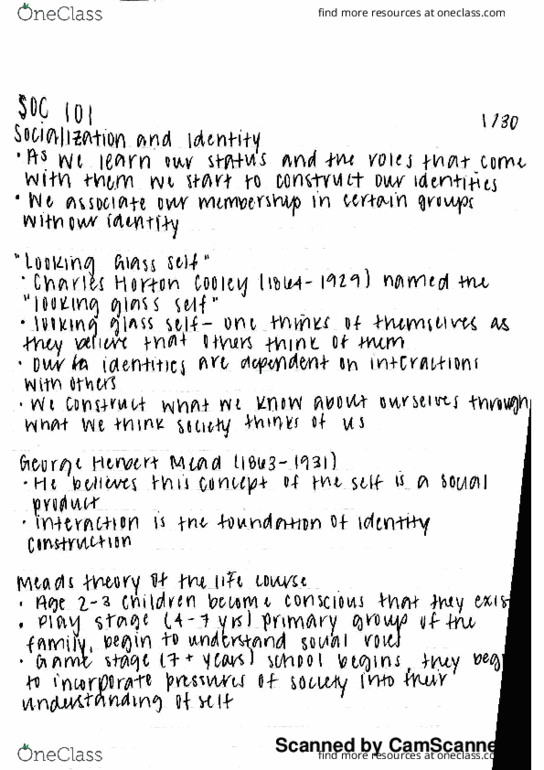 OneClass find more resources at oneclass.com
SOC 101
1/30
Socialization and Identity
· As we learn our status and the roles that come
with them we start to construct our identities
· We associate our membership in certain groups
with our identity
"Looking Glass self"
· Charles Horton Cooley (1864-1929) named the
"looking glass self"
· looking glass self- one thinks of themselves as
they believe that others think of them
· Our identities are dependent on interactions
with others
· We construct what we know about ourselves through
what we think society thinks of us
George Herbert Mead (1863-1931)
· He believes this concept of the self is a social
product
· interaction is the foundation of identity
construction
Meads theory of the life course
· Age 2-3 children become conscious that they exis
· Play stage (4-7 yrs) primary group of the
family, begin to understand social roles
· Game stage (7+ years) school begins, they beg
to incorporate pressures of society into their
understanding of self
Scanned by CamScanne
OneClass find more resources at oneclass.com